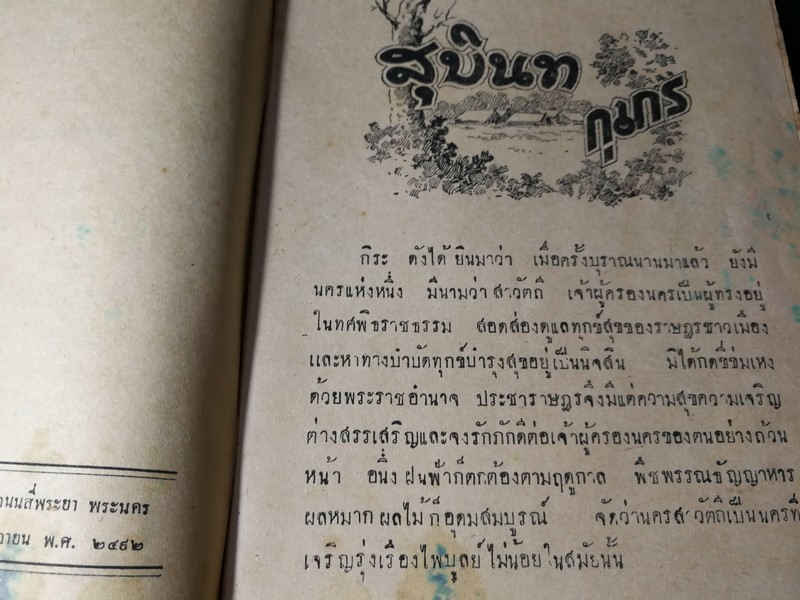 สุบินท
กุมาร
กิระ ดังได้ ยินมาว่า เมื่อครั้งบุราณนานมาแล้ว ยังมี
นครแห่งหนึ่ง มีนามว่า สาวัตถี เจ้าผู้ครองนครเป็นผู้ทรงอยู่
ในทศพิธราชธรรม สอดส่องดูแลทุกข์สุขของราษฎรชาวเมือง
และหาทางบำบัดทุกข์บำรุงสุขอยู่เป็นนิจสิน มิได้กดขี่ข่มเหง
ด้วยพระราชอำนาจ ประชาราษฎรจึงมีแต่ความสุขความเจริญ
ต่างสรรเสริญและจงรักภักดีต่อเจ้าผู้ครองนครของตนอย่างถ้วน
หน้า อนึ่ง ฝนฟ้าก็ตกต้องตามฤดูกาล พืชพรรณธัญญาหาร
ผลหมาก ผลไม้ ก็อุดมสมบูรณ์ จัดว่านครสาวัตถีเป็นนครที่
เจริญรุ่งเรืองไพบูลย์ ไม่น้อยในสมัยนั้น
นนสี่พระยา พระนคร
ายน พ.ศ. ๒๔๙๒